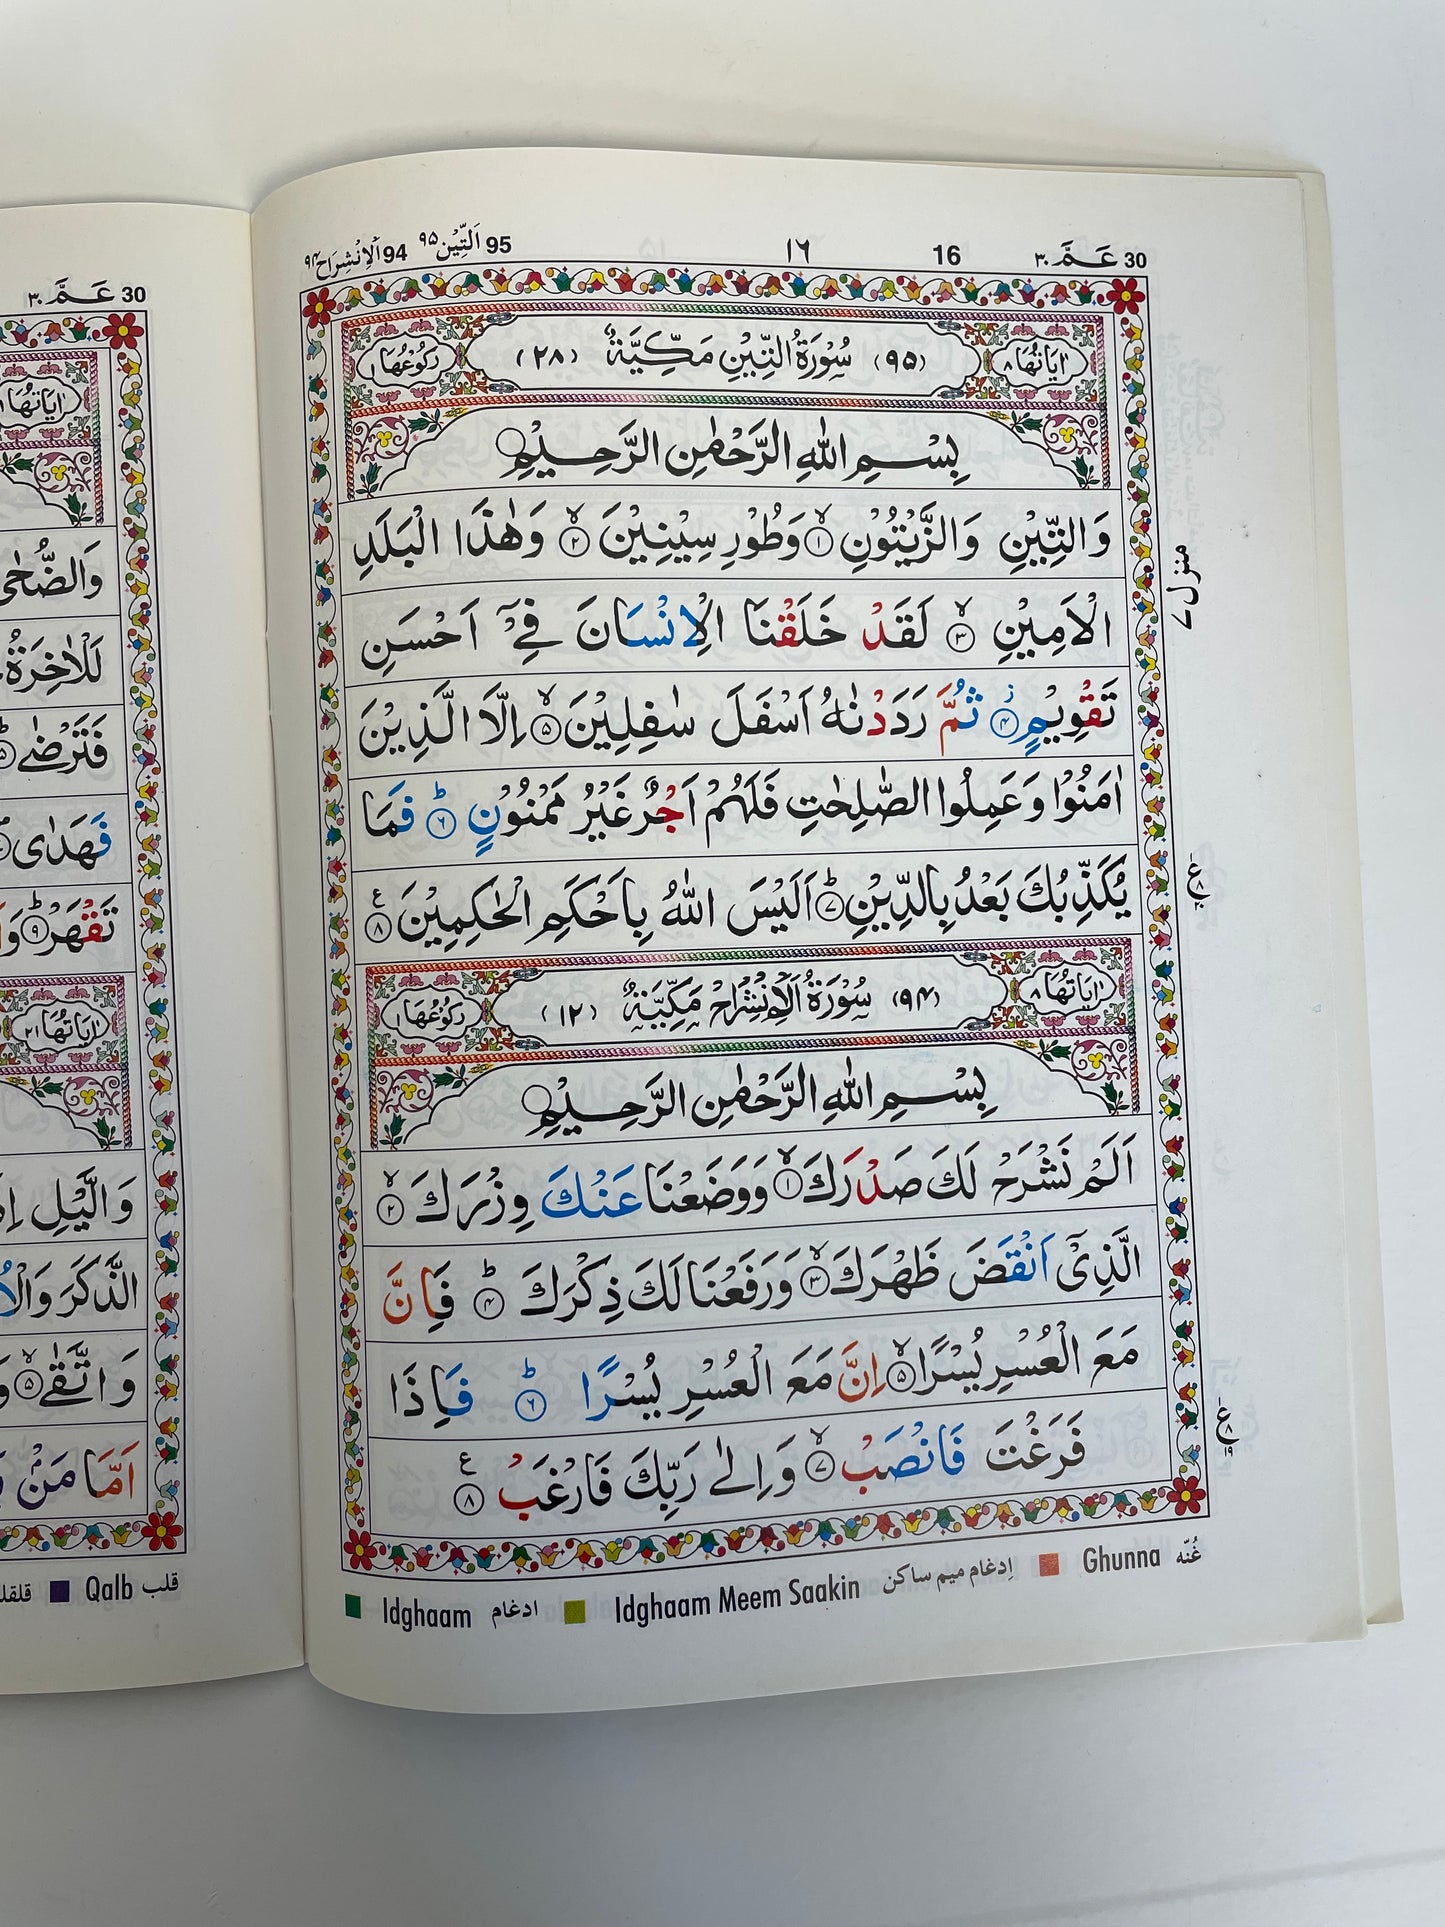 30 عَمَّ ٣٠ 16 ١٦ 95 اَلتِّيْن ٩٥ 94 اَلْاِنْشِرَاح ٩٤
اٰيَاتُهَا ٨ (٩٥) سُوْرَةُ التِّيْنِ مَكِّيَّةٌ (٢٨) رُكُوْعُهَا ١
بِسْمِ اللّٰهِ الرَّحْمٰنِ الرَّحِيْمِ
وَالتِّيْنِ وَالزَّيْتُوْنِ ۙ ١ وَطُوْرِ سِيْنِيْنَ ۙ ٢ وَهٰذَا الْبَلَدِ
الْاَمِيْنِ ۙ ٣ لَقَدْ خَلَقْنَا الْاِنْسَانَ فِيْٓ اَحْسَنِ
تَقْوِيْمٍ ؗ ٤ ثُمَّ رَدَدْنٰهُ اَسْفَلَ سٰفِلِيْنَ ۙ ٥ اِلَّا الَّذِيْنَ
اٰمَنُوْا وَعَمِلُوا الصّٰلِحٰتِ فَلَهُمْ اَجْرٌ غَيْرُ مَمْنُوْنٍ ؕ ٦ فَمَا
يُكَذِّبُكَ بَعْدُ بِالدِّيْنِ ؕ ٧ اَلَيْسَ اللّٰهُ بِاَحْكَمِ الْحٰكِمِيْنَ ع ٨
اٰيَاتُهَا ٨ (٩٤) سُوْرَةُ اَلْاِنْشِرَاحْ مَكِّيَّةٌ (١٢) رُكُوْعُهَا ١
بِسْمِ اللّٰهِ الرَّحْمٰنِ الرَّحِيْمِ
اَلَمْ نَشْرَحْ لَكَ صَدْرَكَ ۙ ١ وَوَضَعْنَا عَنْكَ وِزْرَكَ ۙ ٢
الَّذِيْٓ اَنْقَضَ ظَهْرَكَ ۙ ٣ وَرَفَعْنَا لَكَ ذِكْرَكَ ؕ ٤ فَاِنَّ
مَعَ الْعُسْرِ يُسْرًا ۙ ٥ اِنَّ مَعَ الْعُسْرِ يُسْرًا ؕ ٦ فَاِذَا
فَرَغْتَ فَانْصَبْ ۙ ٧ وَاِلٰى رَبِّكَ فَارْغَبْ ع ٨
منزل ٧
ع ٨
ع ٨ ١٩
Idghaam ادغام Idghaam Meem Saakin اِدغام میم ساکن Ghunna غُنّه
30 عَمَّ ٣٠
اٰيَاتُهَا
وَالضُّحٰى
لَلْاٰخِرَةُ
فَتَرْضٰى ؕ ٥
فَهَدٰى
تَقْهَرْ ؕ ٩
اٰيَاتُهَا ٢١
وَالَّيْلِ
الذَّكَرَ
وَاتَّقٰى ۙ ٥
اَمَّا مَنْۢ
Qalb قلب